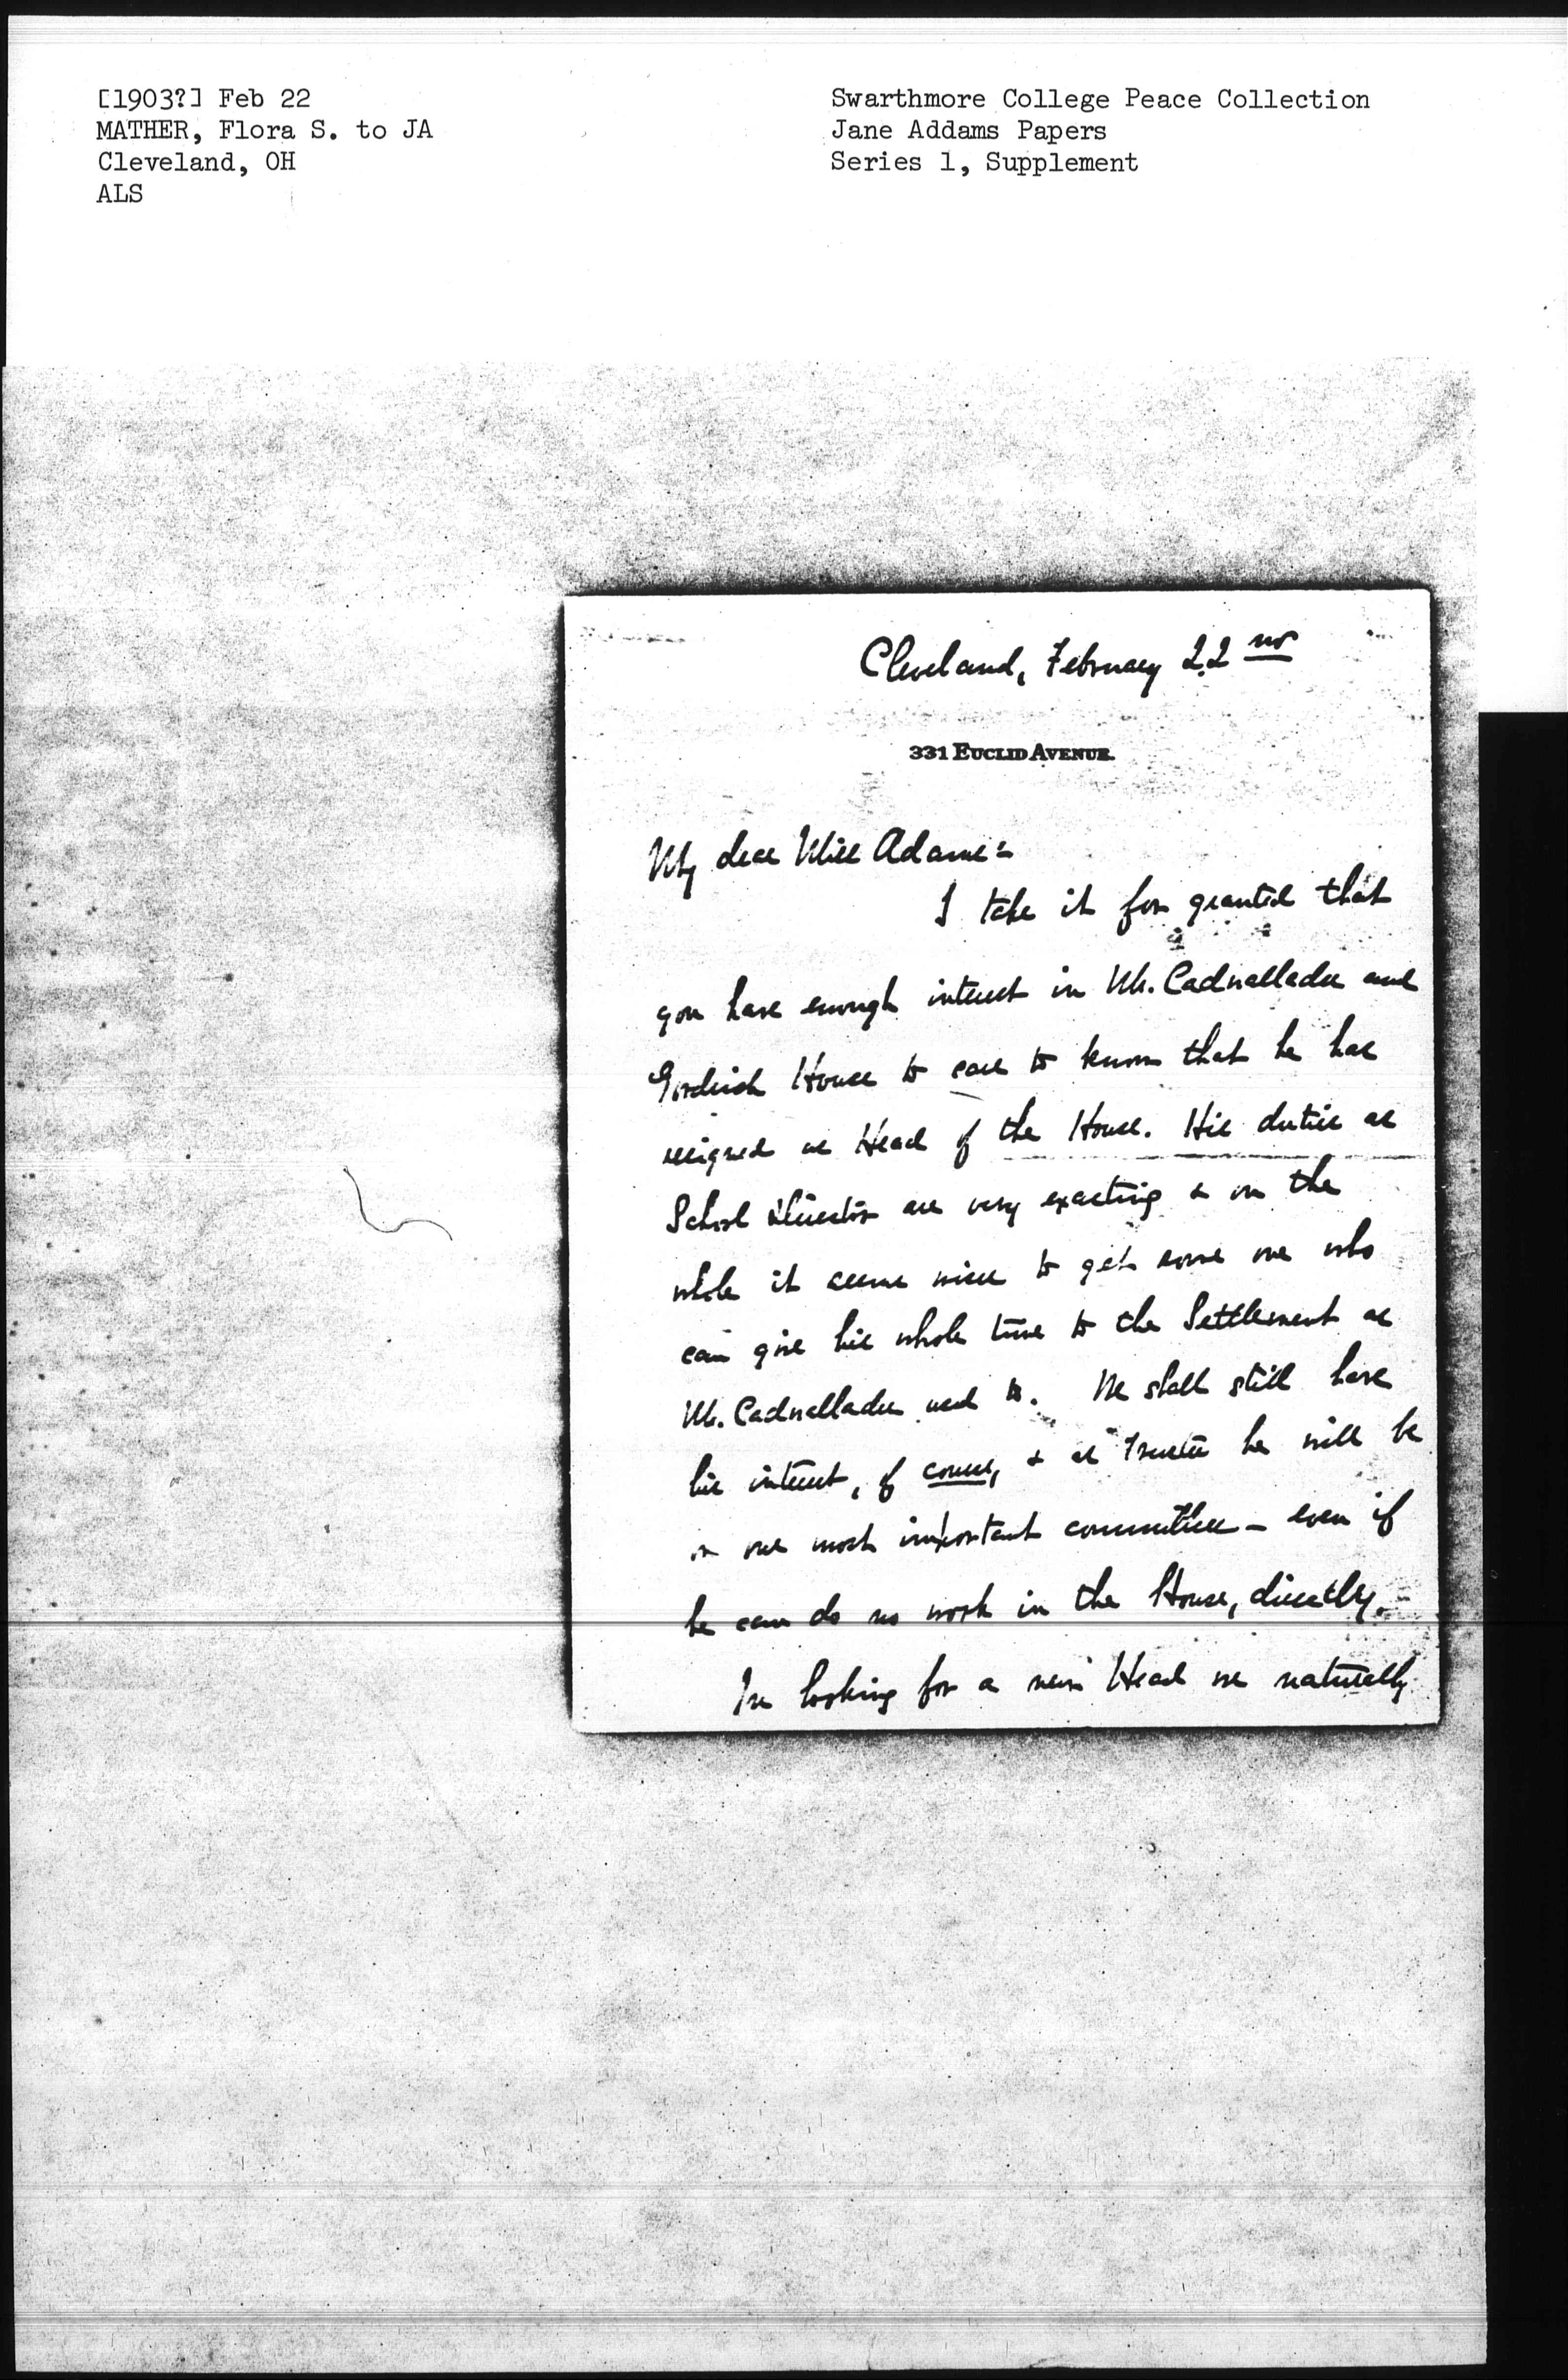 [1903?] Feb 22
MATHER, Flora S. to JA
Cleveland, OH
ALS
Swarthmore College Peace Collection
Jane Addams Papers
Series 1, Supplement
Cleveland, February 22nd
331 EUCLID AVENUE.
My dear Miss Adams:
I take it for granted that
you have enough interest in Mr. Cadwallader and
Goodrich House to care to know that he has
resigned as Head of the House. His duties as
School Director are very exacting & on the
whole it seems wise to get some one who
can give his whole time to the Settlement as
Mr. Cadwallader used to. We shall still have
his interest, of course, & as Trustee he will be
on our most important committees - even if
he can do no work in the House, directly.
In looking for a new Head we naturally